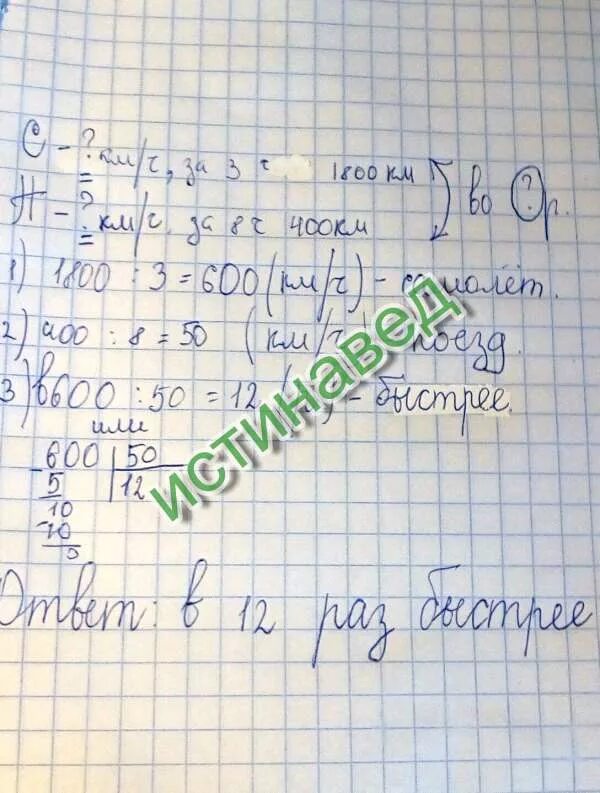 С - ? км/ч, за 3 ч 1800 км
П - ? км/ч, за 8 ч 400 км
во ? р.
1) 1800 : 3 = 600 (км/ч) - самолёт.
2) 400 : 8 = 50 (км/ч) поезд.
3) в 600 : 50 = 12 - быстрее.
или
600 50
5 12
10
10
Ответ: в 12 раз быстрее
ИСТИНАВЕД